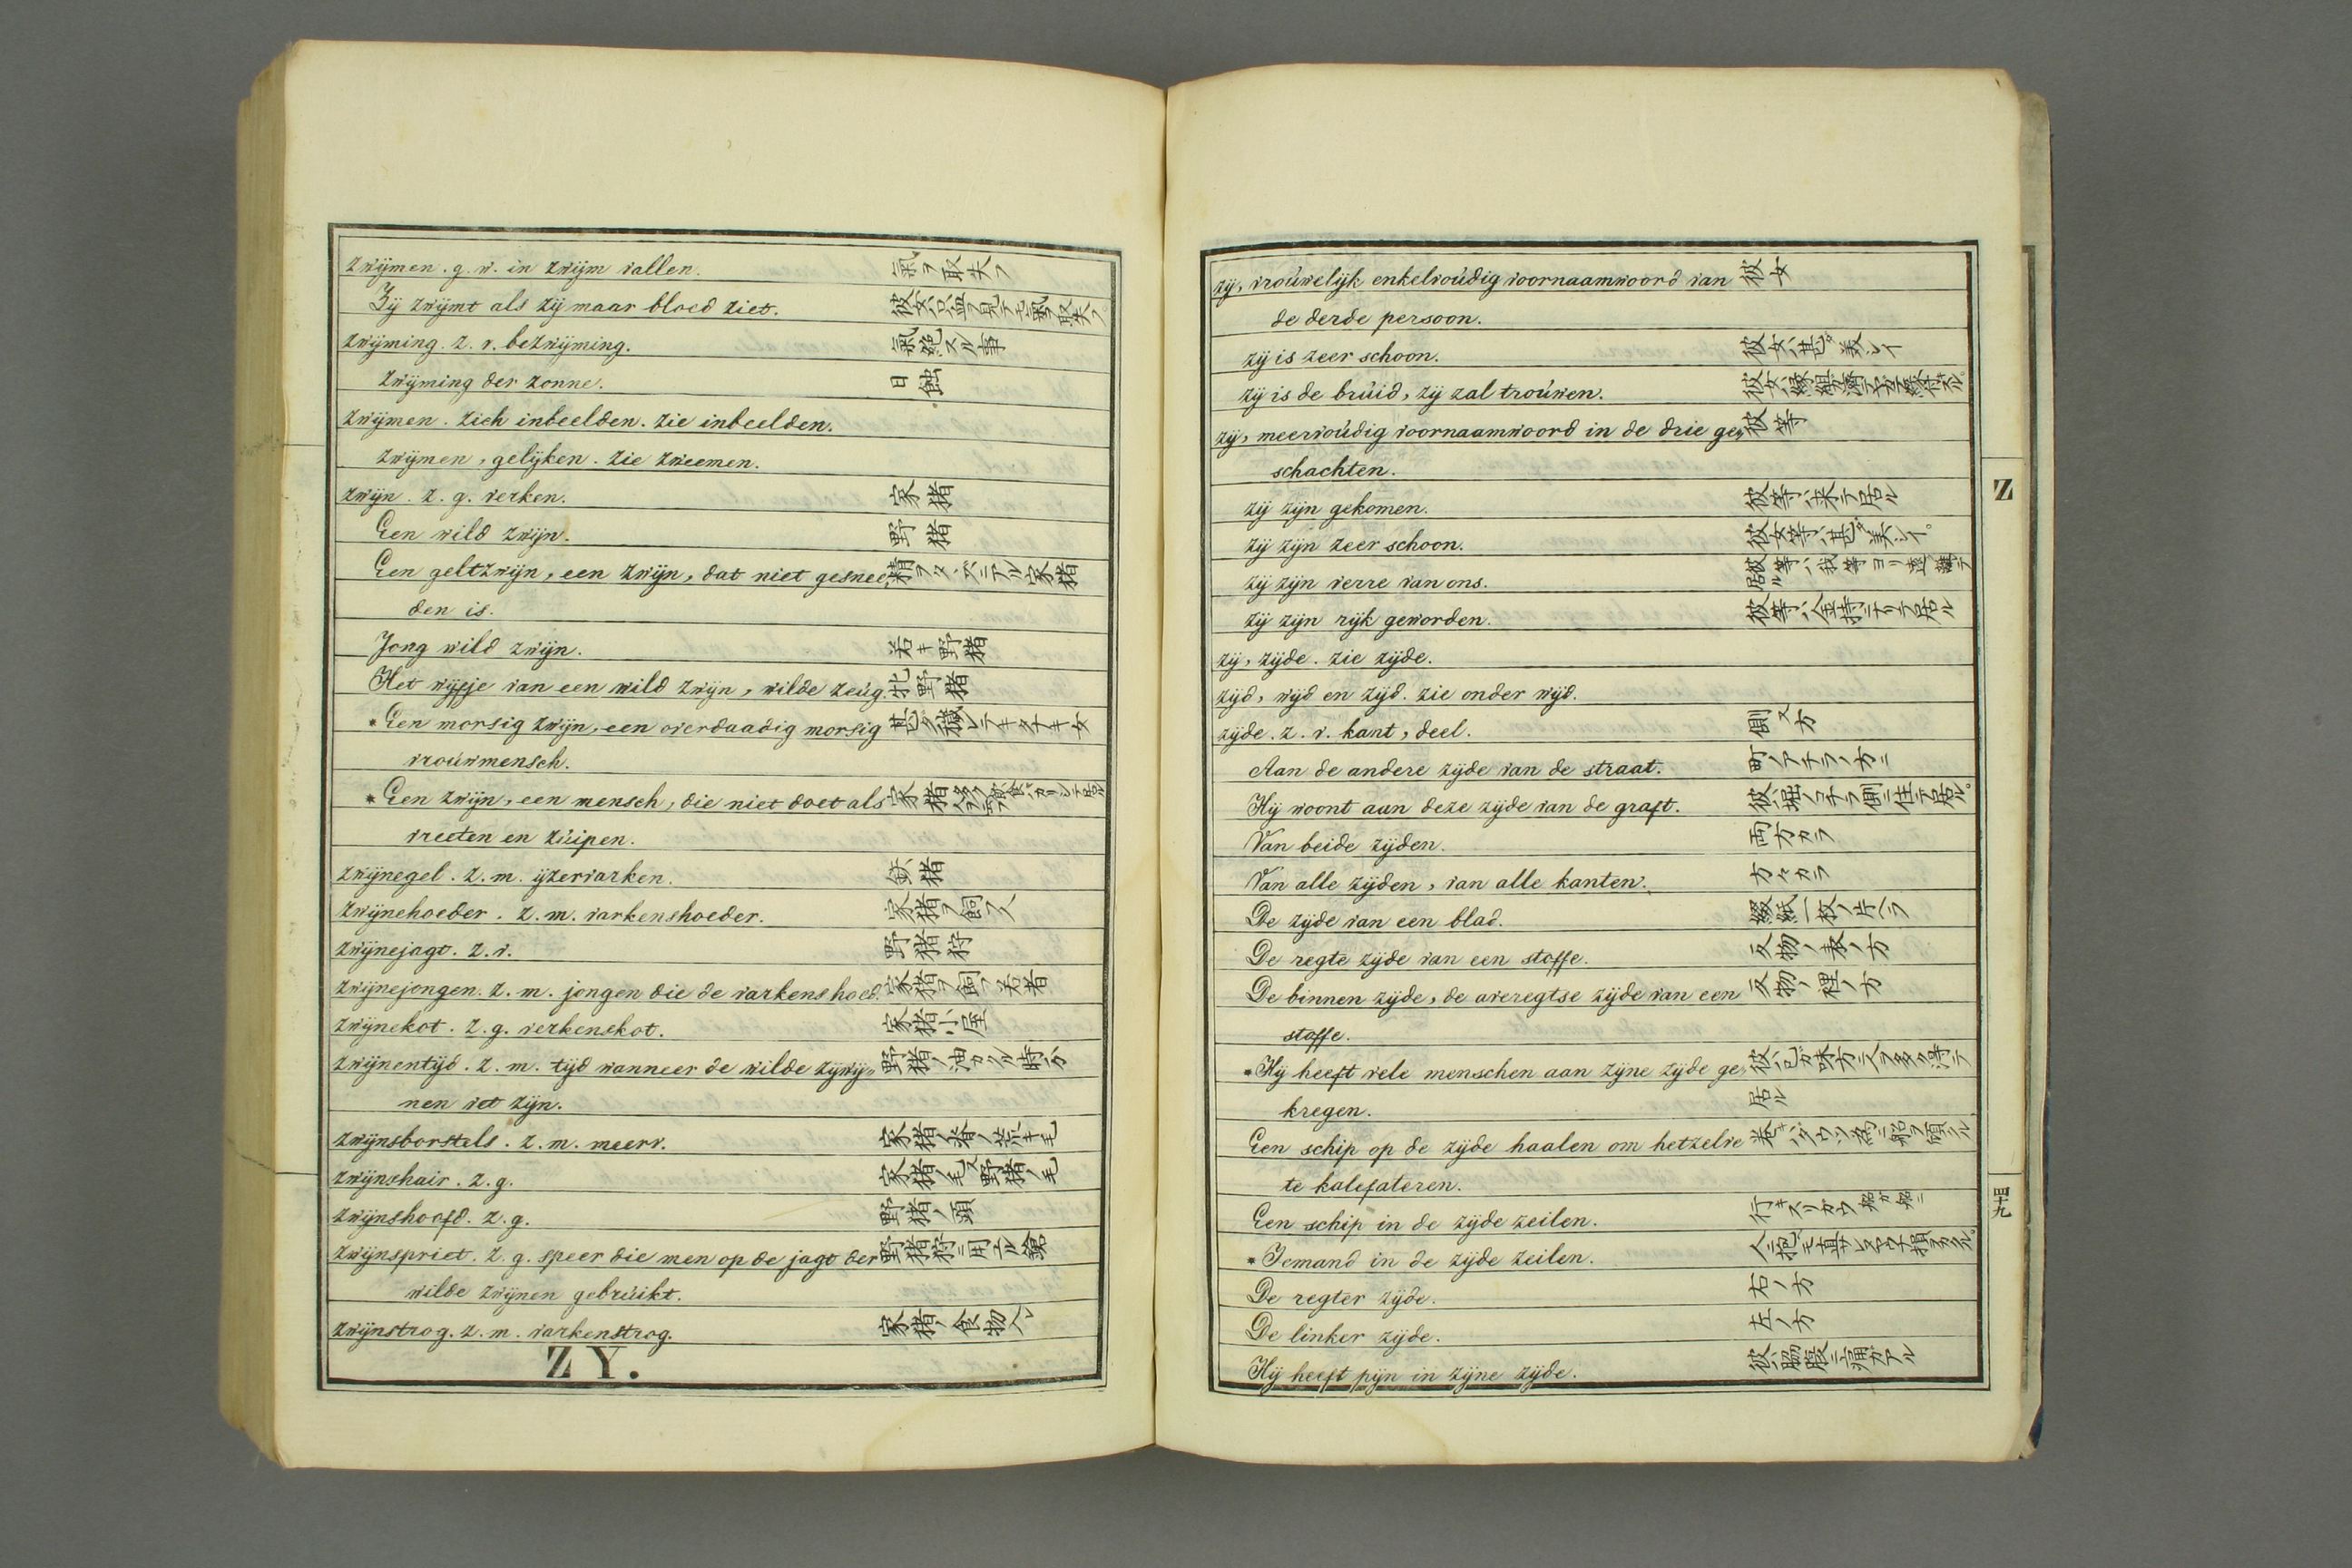 zwijmen. g. w. in zwijm vallen. 氣ヲ取失フ
Zij zwijmt als zij maar bloed ziet.
zwijming. z. v. bezwijming. 氣絶スル事
zwijming der zonne. 日蝕
zwijmen. zich inbeelden. zie inbeelden.
zwijmen, gelijken. zie zweemen.
zwijn. z. g. verken. 家猪
Een wild zwijn. 野猪
Een geltzwijn, een zwijn, dat niet gesnee„
den is.
Jong wild zwijn. 若キ野猪
Het wijfje van een wild zwijn, wilde zeúg. 牝野猪
*Een morsig zwijn, een overdaadig morsig
vroúwmensch.
*Een zwijn, een mensch, die niet doet als 家猪
vreeten en zúipen.
zwijnegel. z. m. ijzervarken. 鉄猪
zwijnehoeder. z. m. varkenshoeder. 家猪ヲ飼フ人
zwijnejagt. z. v. 野猪狩
zwijnejongen. z. m. jongen die de varkens hoed. 家猪ヲ飼フ若者
zwijnekot. z. g. verkenskot. 家猪小屋
zwijnentijd. z. m. tijd wanneer de wilde zijwij„
nen vet zijn.
zwijnsborstels. z. m. meerv. 家猪ノ脊ノ荒キ毛
zwijnshair. z. g. 家猪ノ毛又野猪ノ毛
zwijnshoofd. z. g. 野猪ノ頭
zwijnspriet. z. g. speer die men op de jagt der 野猪狩ニ用ユル鎗
wilde zwijnen gebrúikt.
zwijnstrog. z. m. varkenstrog. 家猪ノ食物入レ
ZY.
zij, vroúwelijk enkelvoúdig voornaamwoord van 彼女
de derde persoon.
zij is zeer schoon. 彼女ハ甚タ美シイ
zij is de brúid, zij zal troúwen.
zij, meervoúdig voornaamwoord in de drie ge„ 彼等
schachten.
zij zijn gekomen. 彼等ハ来テ居ル
zij zijn zeer schoon. 彼女等ハ甚タ美シイ。
zij zijn verre van ons. 彼等ハ我等ヨリ遠ク離テ居ル
zij zijn rijk geworden. 彼等ハ金持ニナリテ居ル
zij, zijde. zie zijde.
zijd, wijd en zijd. zie onder wijd.
zijde. z. v. kant, deel. 側又方
Aan de andere zijde van de straat. 町ノアチラノ方ニ
Hij woont aan deze zijde van de graft. 彼ハ堀ノコチラ側ニ住テ居ル。
Van beide zijden. 両方カラ
Van alle zijden, van alle kanten. 方々カラ
De zijde van een blad. 綴紙一枚ノ片ヘラ
De regte zijde van een stoffe. 反物ノ表ノ方
De binnen zijde, de averegtse zijde van een 反物ノ裡ノ方
stoffe.
*Hij heeft vele menschen aan zijne zijde ge„ 彼ハ己カ味方ニ人ヲ多ク得テ
kregen. 居ル
Een schip op de zijde haalen om hetzelve
te kalefateren.
Een schip in de zijde zeilen.
*Iemand in de zijde zeilen.
De regter zijde. 右ノ方
De linker zijde. 左ノ方
Hij heeft pijn in zijne zijde. 彼ハ脇腹ニ痛ガアル
Z
四十九